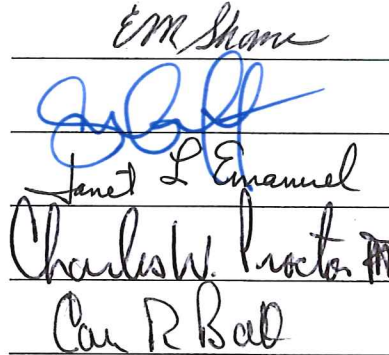 EM Shane
Janet L Emanuel
Charles W. Proctor III
R Ball